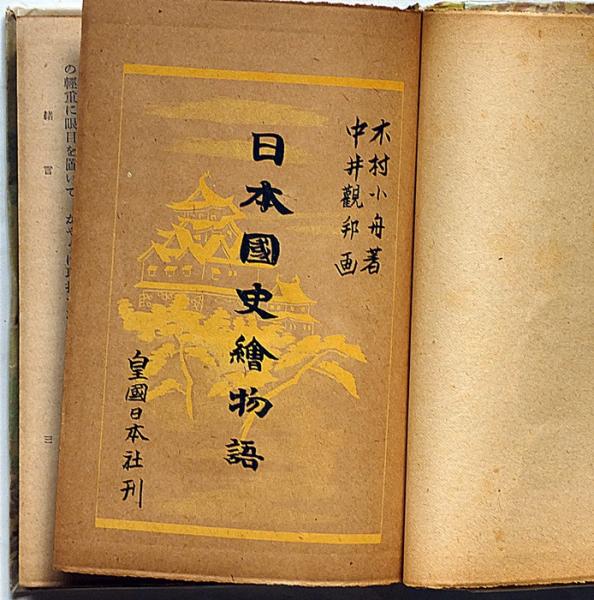 木村小舟著
中井觀邦画
日本國史繪物語
皇國日本社刊
の輕重に眼目を置いて
緒言
三